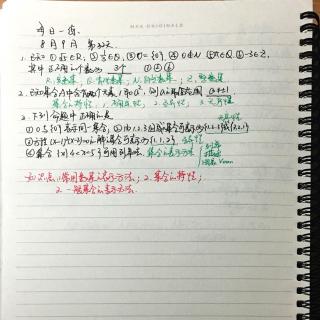 每日一练
8月9日 第32天
1. 已知 ① √5∈R, ② ⅓∈Q, ③ 0={0}, ④ 0∉N ⑤ π∈Q ⑥ -3∈Z,
其中正确的个数为 3个 ①②⑥
R, 实数集 Q, 有理数集 N, 自然数集 Z, 整数集
2. 已知集合A中含有两个元素 1和a², 则a的取值范围 a≠±1
集合的特性, 1. 确定性 2. 互异性 3. 无序性
3. 下列命题中正确的是
无序性
① 0与{0}表示同一集合, ② 由1,2,3组成集合可表示{1,2,3}或{3,2,1}
③ 方程(x-1)²(x-2)=0的解集合可表示{1,1,2} 互异性
④ 集合{x|4<x<5}可用列举法 集合的表示方法
列举法
描述法
图表 Venn
知识点: 1. 常用数集的表示方法; 2. 集合的特性;
2. 一般集合的表示方法.